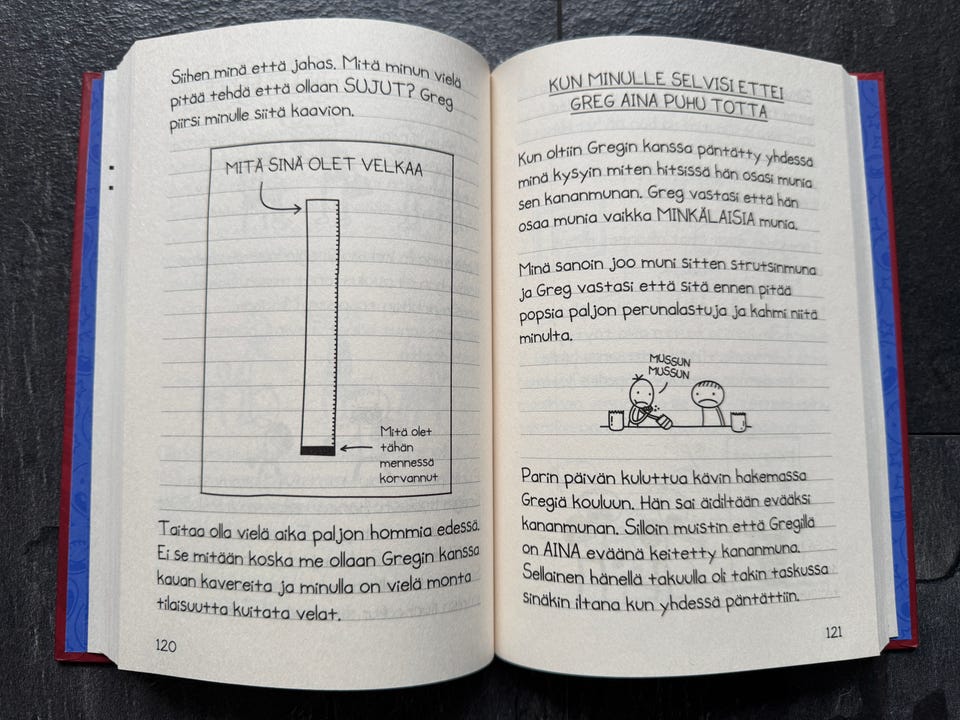 Siihen minä että jahas. Mitä minun vielä
pitää tehdä että ollaan SUJUT? Greg
piirsi minulle siitä kaavion.
MITÄ SINÄ OLET VELKAA
Mitä olet
tähän
mennessä
korvannut
Taitaa olla vielä aika paljon hommia edessä.
Ei se mitään koska me ollaan Gregin kanssa
kauan kavereita ja minulla on vielä monta
tilaisuutta kuitata velat.
120
KUN MINULLE SELVISI ETTEI
GREG AINA PUHU TOTTA
Kun oltiin Gregin kanssa päntätty yhdessä
minä kysyin miten hitsissä hän osasi munia
sen kananmunan. Greg vastasi että hän
osaa munia vaikka MINKÄLAISIA munia.
Minä sanoin joo muni sitten strutsinmuna
ja Greg vastasi että sitä ennen pitää
popsia paljon perunalastuja ja kahmi niitä
minulta.
MUSSUN
MUSSUN
Parin päivän kuluttua kävin hakemassa
Gregiä kouluun. Hän sai äidiltään evääksi
kananmunan. Silloin muistin että Gregillä
on AINA eväänä keitetty kananmuna.
Sellainen hänellä takuulla oli takin taskussa
sinäkin iltana kun yhdessä päntättiin.
121